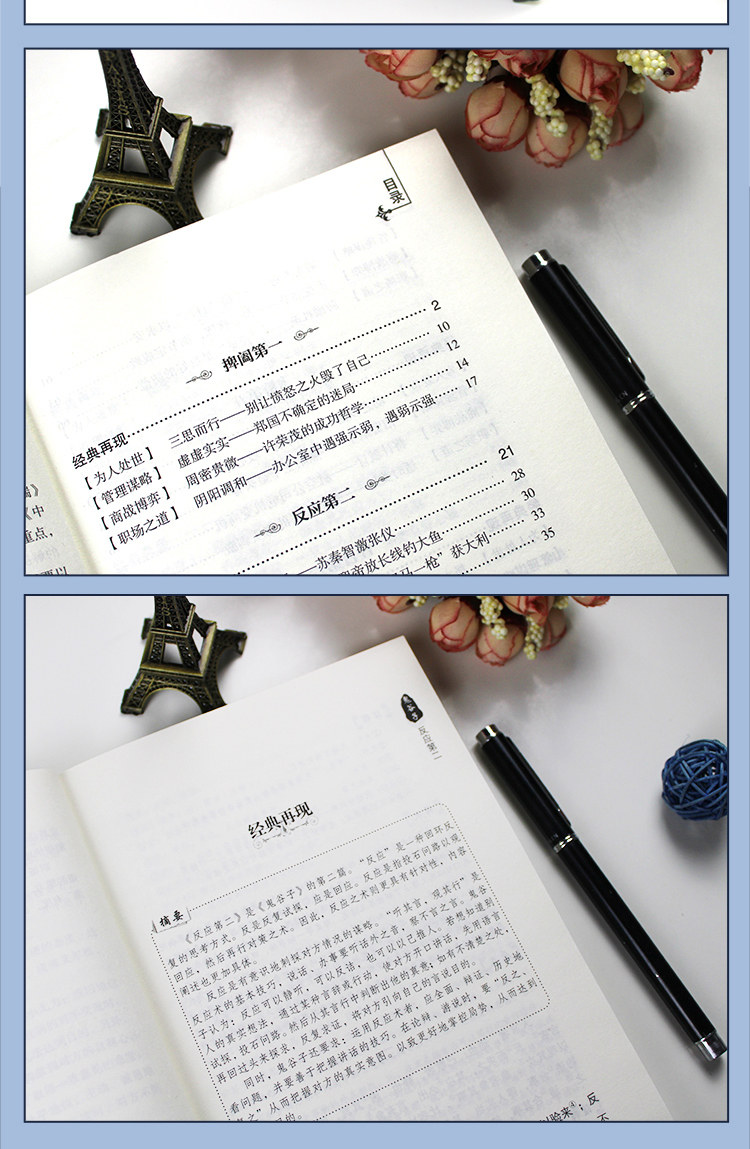 目录
捭阖第一
经典再现 2
【为人处世】 三思而行——别让愤怒之火毁了自己 10
【管理谋略】 虚虚实实——郑国不确定的迷局 12
【商战博弈】 周密贵微——许荣茂的成功哲学 14
【职场之道】 阴阳调和——办公室中遇强示弱，遇弱示强 17
反应第二
21
——苏秦智激张仪 28
帝放长线钓大鱼 30
马一枪”获大利 33
35
》
《中
重点，
反应第二
经典再现
摘要
《反应第二》是《鬼谷子》的第二篇。“反应”是一种回环反
复的思考方式。反是反复试探，应是回应。反应是指投石问路以观
回应，然后再行对策之术。因此，反应之术则更具有针对性，内容
阐述也更加具体。
反应是有意识地刺探对方情况的谋略。“听其言，观其行”是
反应术的基本技巧，说话、办事要听话外之音，察不言之言。鬼谷
子认为：反应可以静听，可以反诘，也可以以己推人。若想知道别
人的真实想法，通过某种言辞或行动，使对方开口讲话，先用语言
试探，投石问路。然后从其言行中判断出他的真意，如有不清楚之处，
再回过头来探求，反复求证，将对方引向自己的言说目的。
同时，鬼谷子还要求：运用反应术者，应全面、辩证、历史地
看问题，并要善于把握讲话的技巧。在论辩、游说时，要“反之、
之”从而把握对方的真实意图。以致更好地掌握局势，从而达到
的。
脸来④；反
不